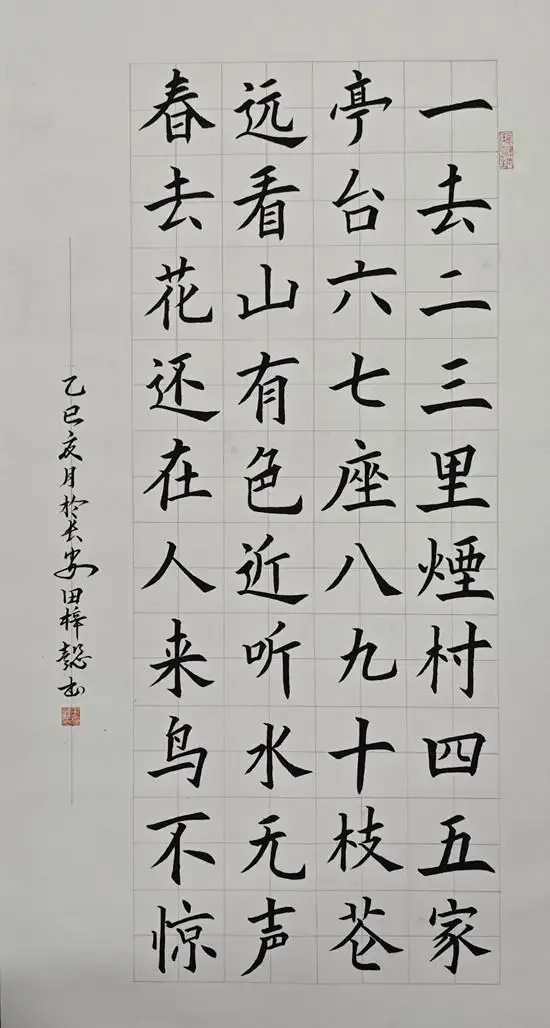 一去二三里煙村四五家
亭台六七座八九十枝芲
远看山有色近听水无声
春去花还在人来鸟不惊
乙巳亥月於长安田梓懿书